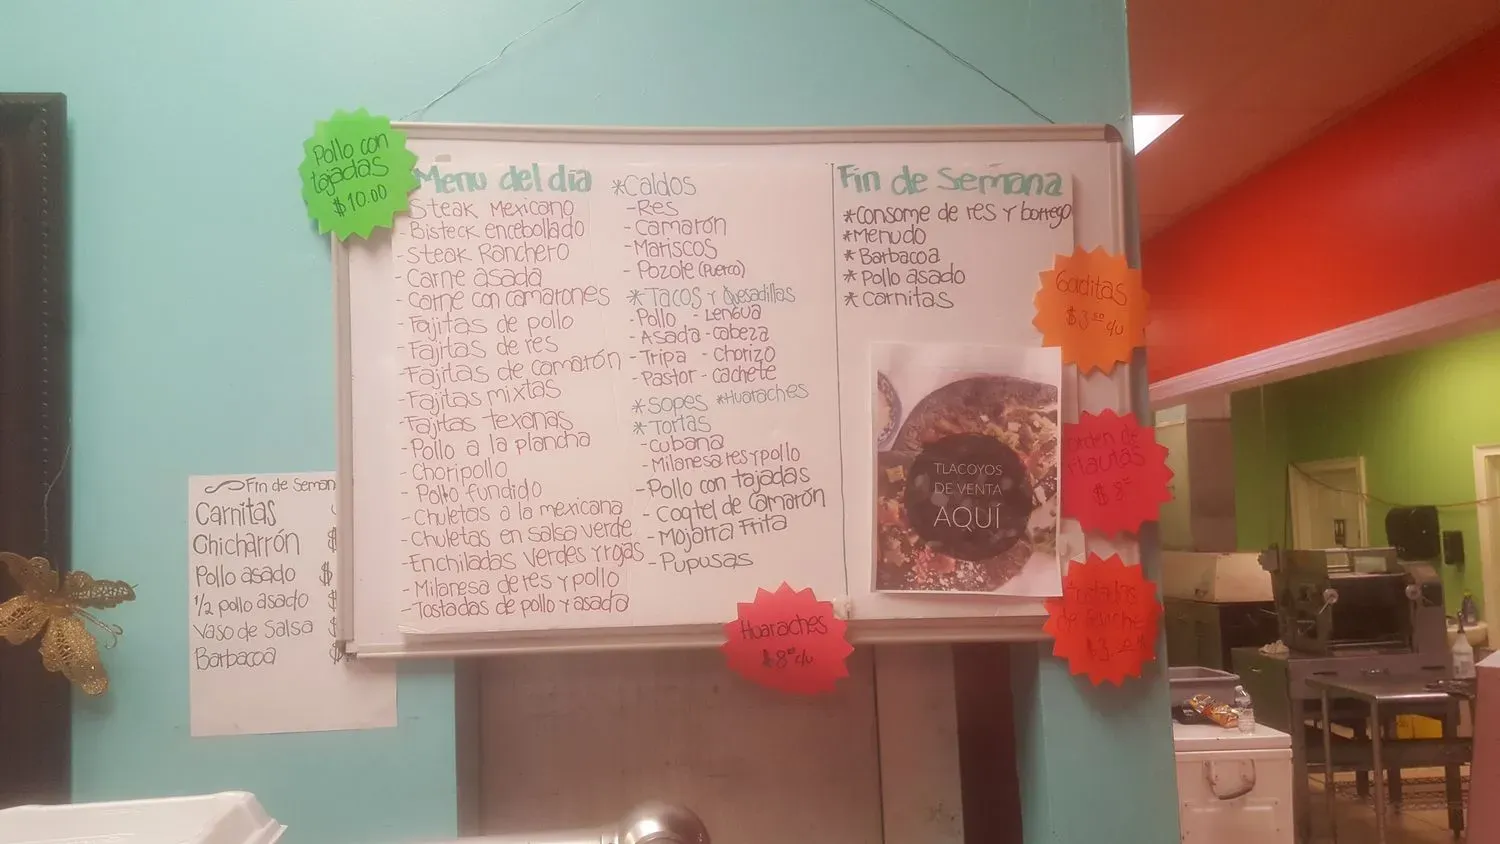 Pollo con
tajadas
$10.00
Menu del día
Steak Mexicano
- Bisteck encebollado
- Steak Ranchero
- Carne asada
- Carne con camarones
- Fajitas de pollo
- Fajitas de res
- Fajitas de camarón
- Fajitas mixtas
- Fajitas texanas
- Pollo a la plancha
- Choripollo
- Pollo fundido
- Chuletas a la mexicana
- Chuletas en salsa verde
- Enchiladas verdes y rojas
- Milanesa de res y pollo
- Tostadas de pollo y asada
*Caldos
- Res
- Camarón
- Mariscos
- Pozole (Puerco)
*Tacos y Quesadillas
- Pollo - Lengua
- Asada - cabeza
- Tripa - chorizo
- Pastor - cachete
*Sopes *Huaraches
*Tortas
- Cubana
- Milanesa res y pollo
- Pollo con tajadas
- Coqtel de Camarón
- Mojarra Frita
- Pupusas
Fin de Semana
*Consome de res y borrego
*Menudo
*Barbacoa
*Pollo asado
*Carnitas
TLACOYOS
DE VENTA
AQUÍ
Gorditas
$3.50 c/u
orden de
Flautas
$8
Huaraches
$8 c/u
Fin de Seman
Carnitas
Chicharrón $
Pollo asado $
1/2 pollo asado $
Vaso de Salsa $
Barbacoa $